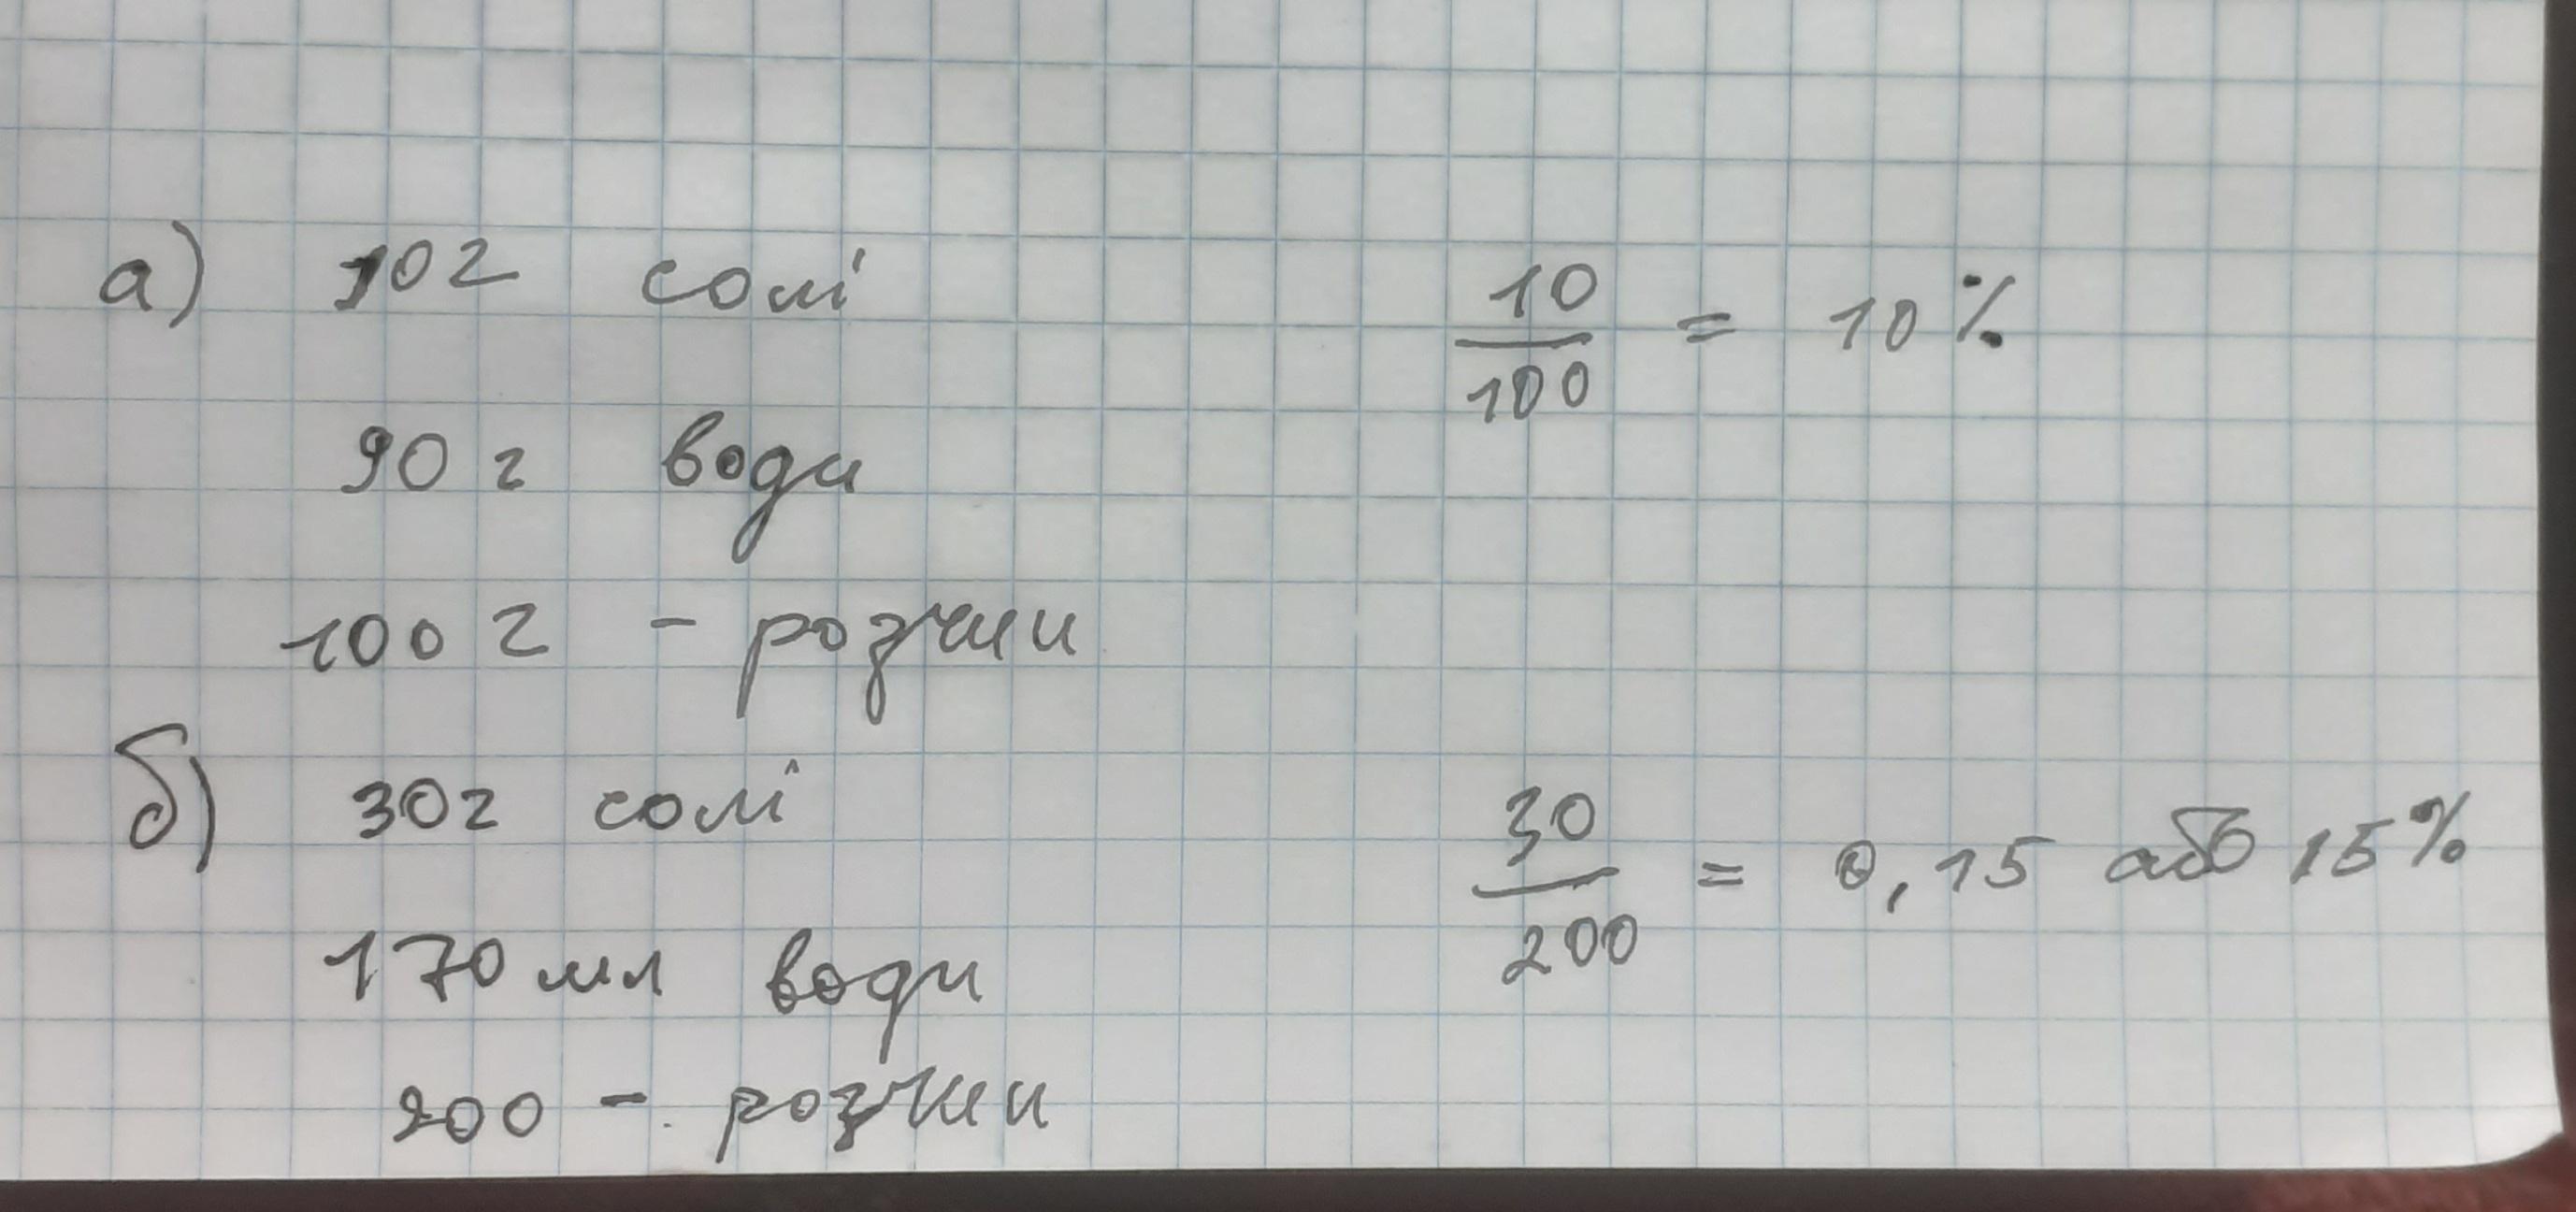 а) 10г солі
10/100 = 10%
90 г води
100 г - розчин
б) 30г солі
30/200 = 0,15 або 15%
170 мл води
200 - розчин